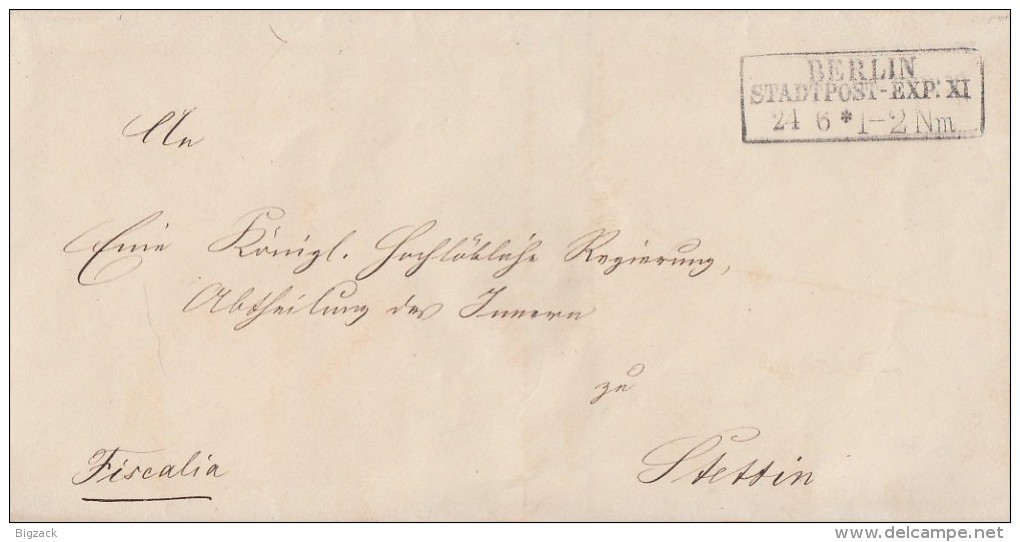 BERLIN
STADTPOST-EXP. XI
24 6 * 1-2 Nm
An
Eine Königl. Hochlöbliche Regierung,
Abtheilung des Innern
zu
Stettin
Fiscalia
Bigzack
delcampe.net